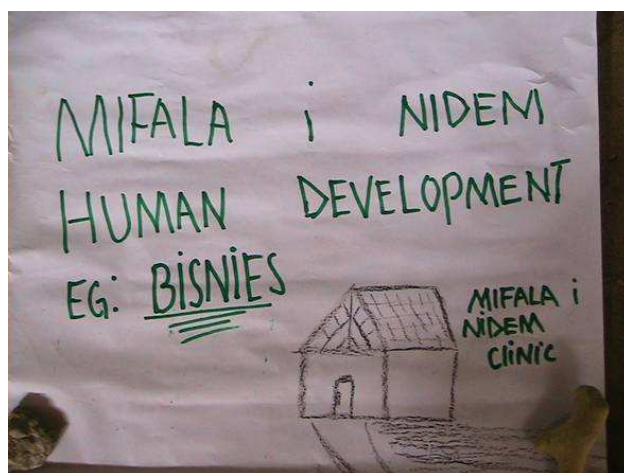 MIFALA i NIDEM
HUMAN DEVELOPMENT
EG: BISNIES
MIFALA i
NIDEM
CLINIC